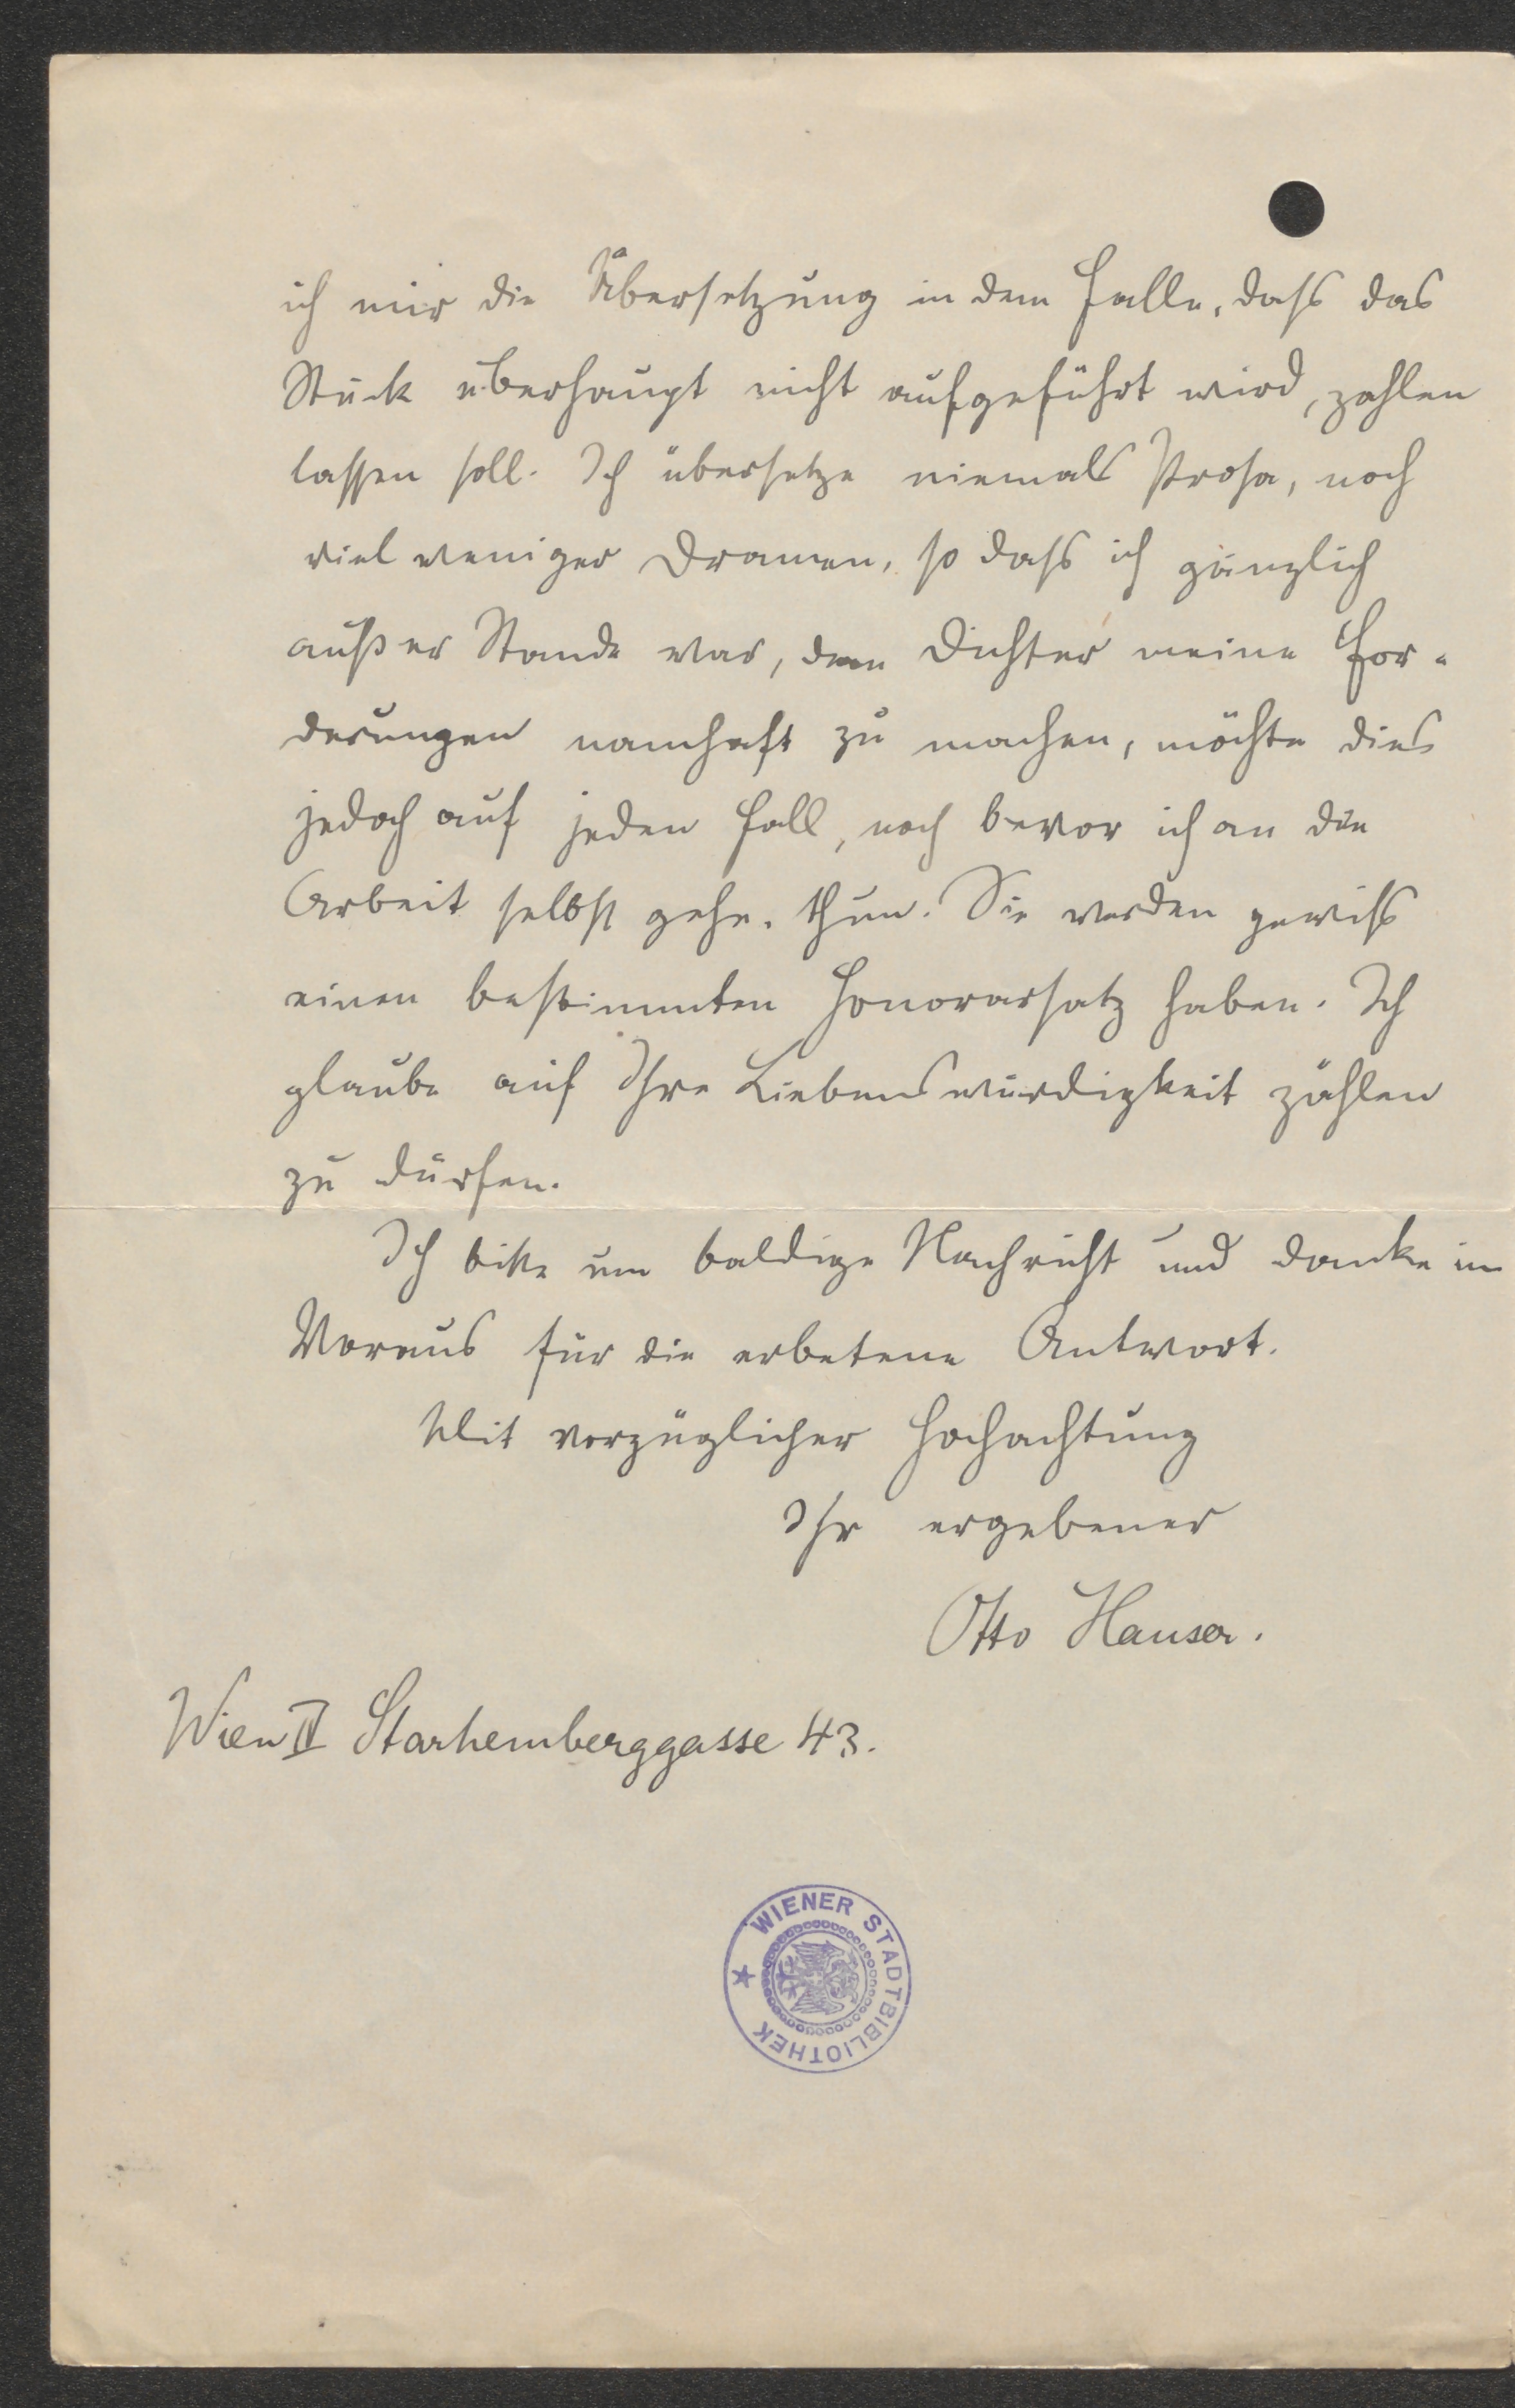 ich mir die Übersetzung in dem Falle, dass das
Stück überhaupt nicht aufgeführt wird, zahlen
lassen soll. Ich übersetze niemals Prosa, noch
viel weniger Dramen, so dass ich gänzlich
außer Stande war, dem Dichter meine For-
derungen namhaft zu machen, möchte dies
jedoch auf jeden Fall, noch bevor ich an die
Arbeit selbst gehe, thun. Sie werden gewiss
einen bestimmten Honorarsatz haben. Ich
glaube auf Ihre Liebenswürdigkeit zählen
zu dürfen.
Ich bitte um baldige Nachricht und danke im
Voraus für die erbetene Antwort.
Mit vorzüglicher Hochachtung
Ihr ergebener
Otto Hauser.
Wien IV Starhemberggasse 43.
WIENER STADTBIBLIOTHEK